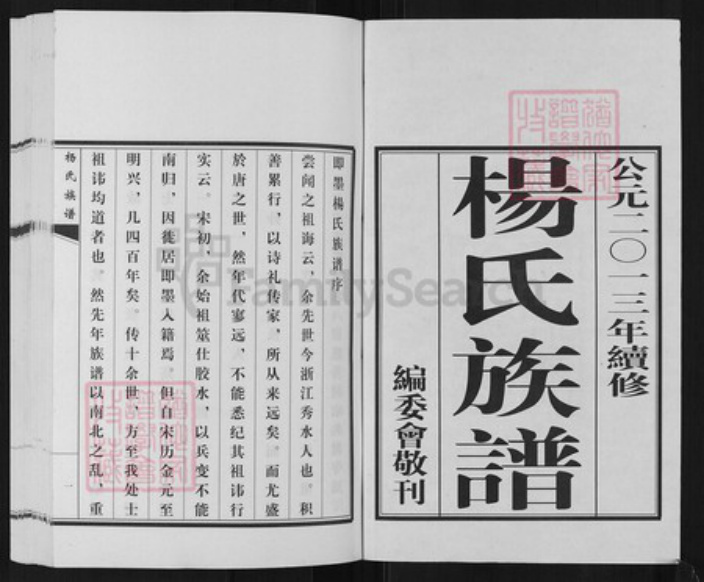 公元二〇一三年續修
楊氏族譜
編委會敬刊
即墨楊氏族谱序
尝闻之祖海云，余先世今浙江秀水人也。积
善累行，以诗礼传家，所从来远矣。而尤盛
於唐之世，然年代寥远，不能悉纪其祖讳行
实云。宋初，余始祖筮仕胶水，以兵变不能
南归，因徙居即墨入籍焉。但自宋历金元至
明兴，几四百年矣。传十余世，方至我处士
祖讳均道者也。然先年族谱以南北之乱，重
杨氏族谱
一
FamilySearch